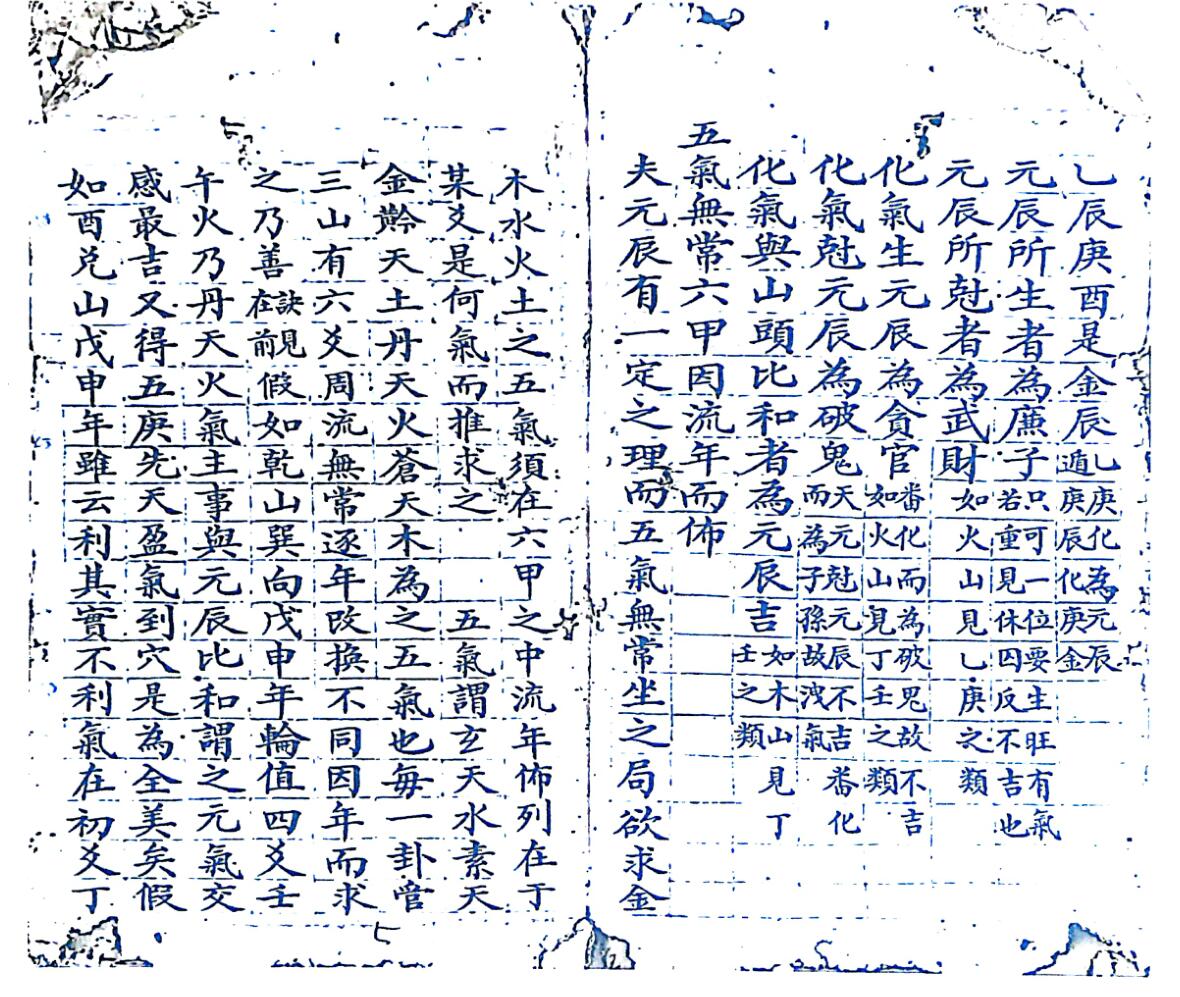 乙辰庚酉是金辰乙庚化為元辰遁庚辰化庚金
元辰所生者為廉子只可一位要生旺有氣若重見休囚反不吉也
元辰所尅者為武財如火山見乙庚之類
化氣生元辰為貪官番化而為破鬼故不吉如火山見丁壬之類
化氣尅元辰為破鬼天元尅元辰不吉番化而為子孫故洩氣
化氣與山頭比和者為元辰吉如木山見丁壬之類
五氣無常六甲因流年而佈
夫元辰有一定之理而五氣無常坐之局欲求金
木水火土之五氣須在六甲之中流年佈列在于
某爻是何氣而推求之　五氣謂玄天水素天
金黅天土丹天火蒼天木為之五氣也每一卦管
三山有六爻周流無常逐年改換不同因年而求
之乃善訣見在前假如乾山巽向戊申年輪值四爻壬
午火乃丹天火氣主事與元辰比和謂之元氣交
感最吉又得五庚先天盈氣到穴是為全美矣假
如酉兌山戊申年雖云利其實不利氣在初爻丁